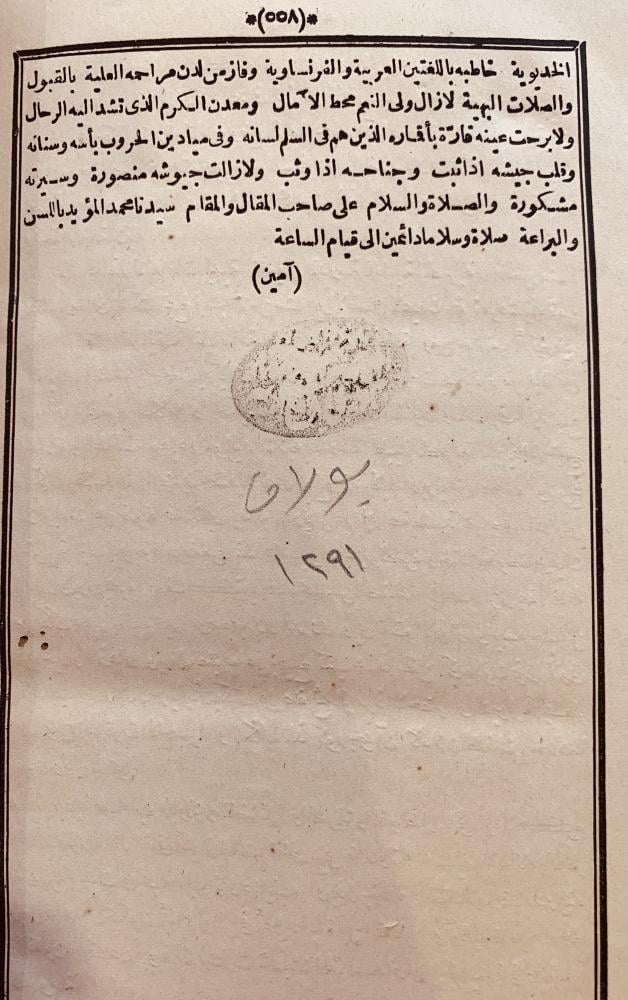 *(٥٥٨)*
الخديوية خاطبه باللغتين العربية والفرنساوية وفاز من لدن مراحمه العلية بالقبول
والصلات البهية لازال ولى النعم محط الآمال ومعدن الكرم الذى تشد اليه الرحال
ولا برحت عينه قارّة بأقماره الذين هم فى السلم لسانه وفى ميادين الحروب بأسه وسنانه
وقلب جيشه اذا ثبت وجناحه اذا وثب ولا زالت جيوشه منصورة وسيرته
مشكورة والصلاة والسلام على صاحب المقال والمقام سيدنا محمد المؤيد باللسن
والبراعة صلاة وسلاما دائمين الى قيام الساعة
(آمين)
بولاق
١٢٩١